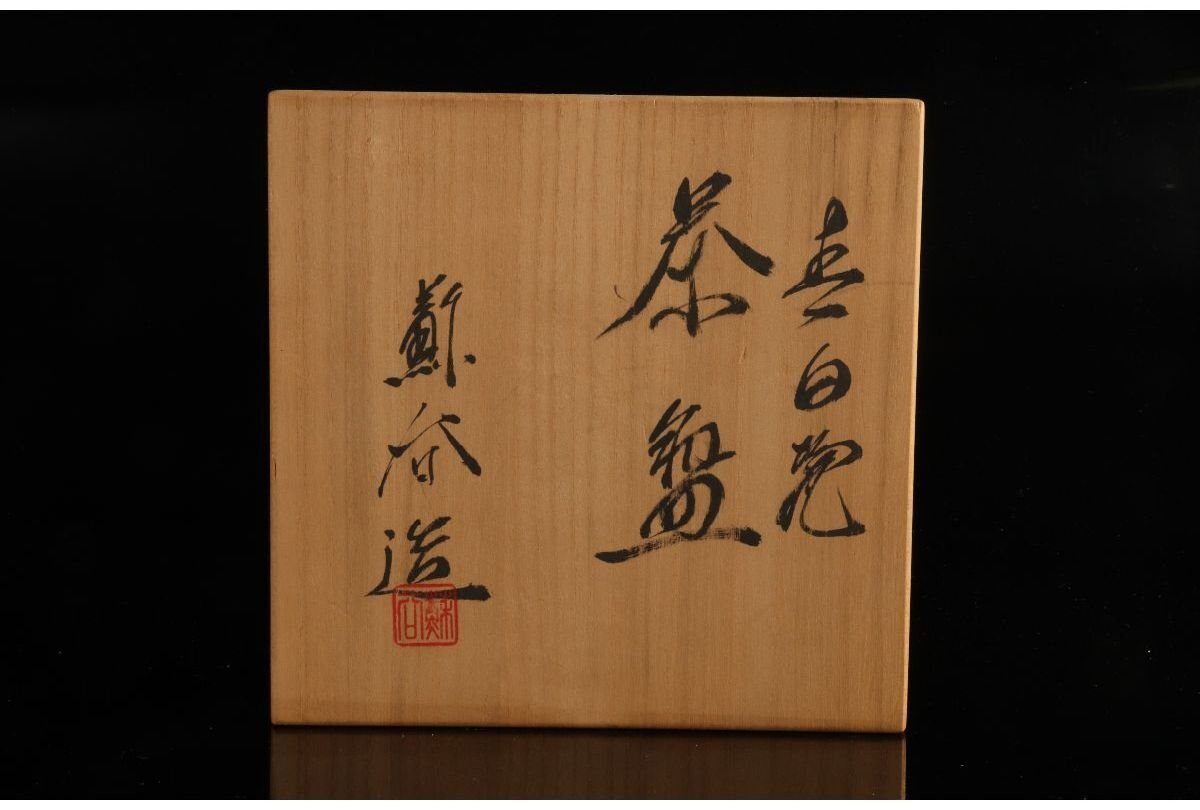 青白瓷
茶盤
蘇谷造